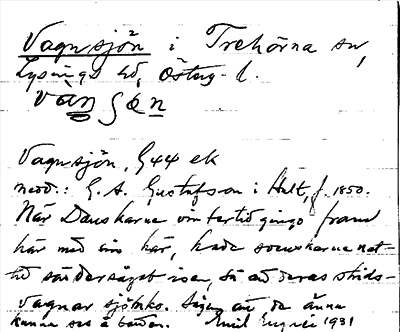 Vagnsjön i Trehörna sn,
Lysings hd, Östg. l.
Vagnsjön, G44 ek
medd.: G. A. Gustafson i Hult, f. 1850.
När Danskarne vintertid gingo fram
här med sin här, hade svenskarne nat-
tid söndersågat isen, så att deras strids-
vagnar sjönko. Sägen att de ännu
kunna ses å botten. Emil 1931